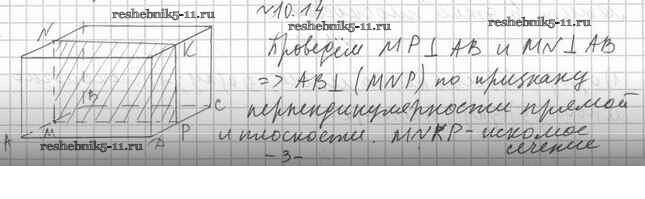 reshebnik5-11.ru
№10.14
reshebnik5-11.ru
N
K
Проведём MP⊥AB и MN⊥AB
=> AB⊥(MNP) по признаку
перпендикулярности прямой
и плоскости. MNKP - искомое
сечение
B
C
A
M
D
P
reshebnik5-11.ru
reshebnik5-11.ru
-3-